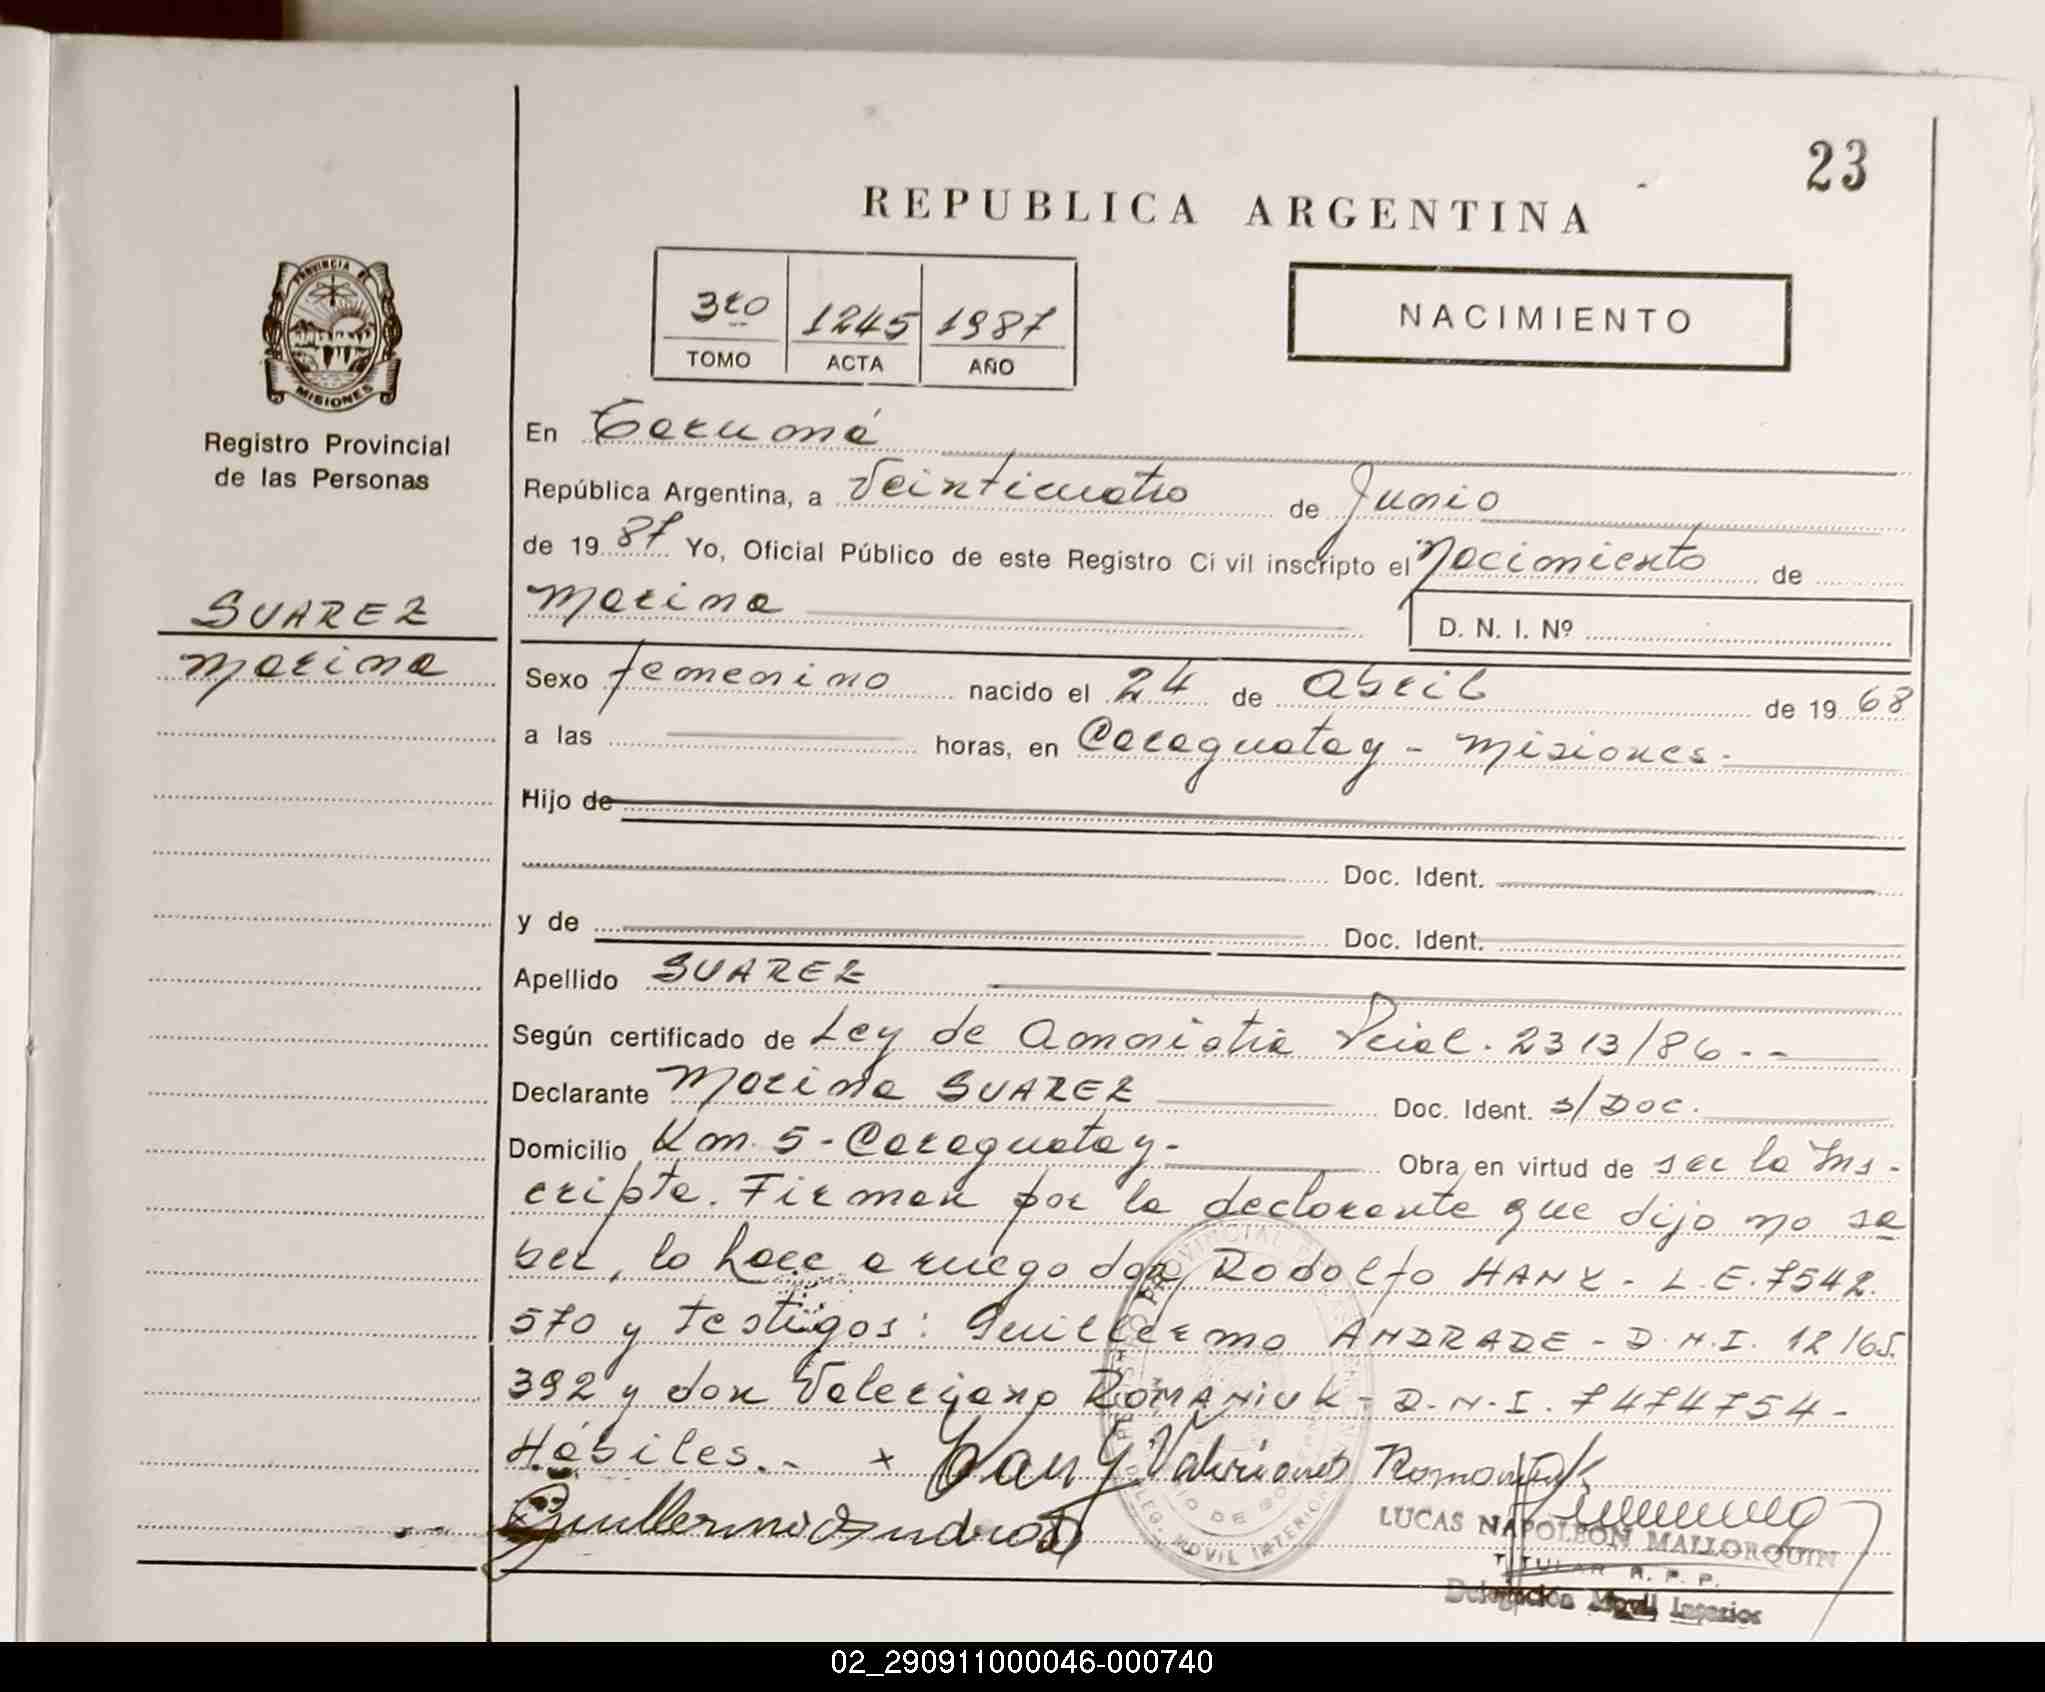 23
REPUBLICA ARGENTINA
3ro 1245 1987
TOMO ACTA AÑO
NACIMIENTO
PROVINCIA DE
MISIONES
Registro Provincial
de las Personas
SUAREZ
Marina
En Tarumá
República Argentina, a Veinticuatro de Junio
de 19 87 Yo, Oficial Público de este Registro Civil inscripto el Nacimiento de
Marina
D. N. I. Nº
Sexo femenino nacido el 24 de abril de 19 68
a las horas, en Caraguatay - Misiones.
Hijo de
Doc. Ident.
y de Doc. Ident.
Apellido SUAREZ
Según certificado de Ley de Amnistia Pcial. 2313/86.--
Declarante Marina SUAREZ Doc. Ident. s/Doc.
Domicilio Km. 5 - Caraguatay - Obra en virtud de ser la Ins-
cripta. Firman por la declarante que dijo no sa
ber, lo hace a ruego don Rodolfo HANY - L.E. 7542.
570 y testigos: Guillermo ANDRADE - D.N.I. 12165.
392 y don Valeriano ROMANIUK - D.N.I. 7474754 -
Hábiles.-
Guillermo Andrade
LUCAS NAPOLEON MALLORQUIN
TITULAR R. P. P.
Delegación Movil Interior
02_290911000046-000740